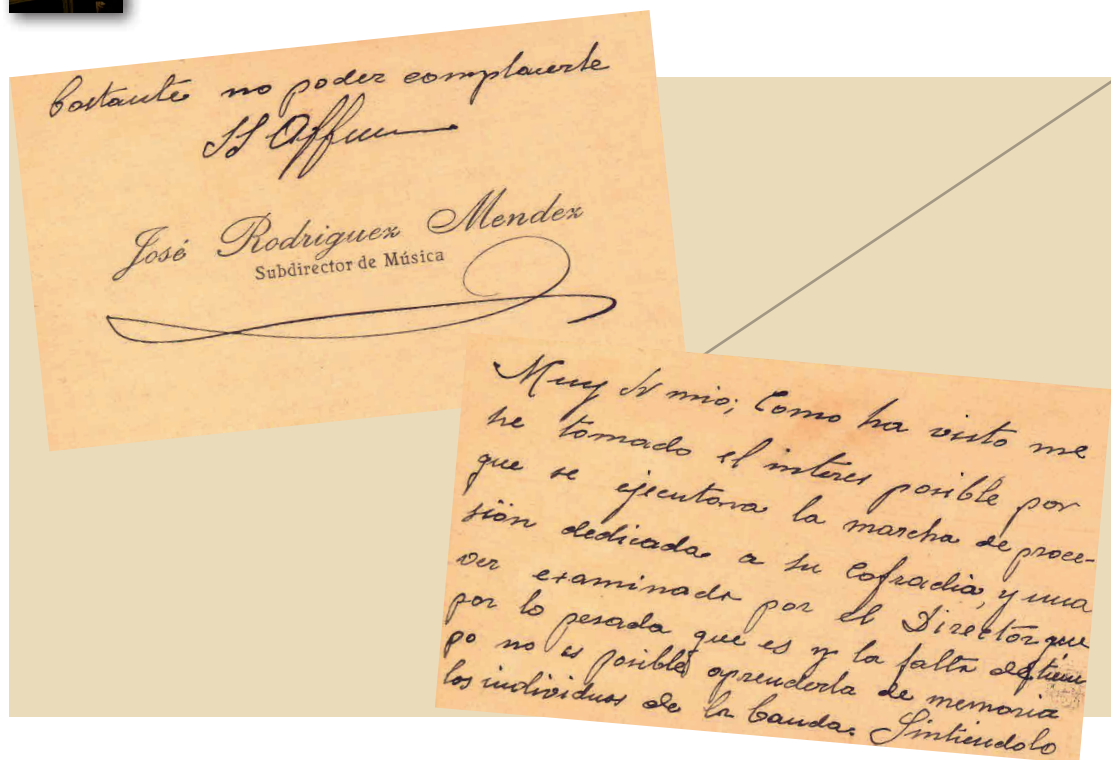 bastante no poder complacerte
SS Affmo
José Rodriguez Mendez
Subdirector de Música
Muy Sr mio; Como ha visto me
he tomado el interes posible por
que se ejecutara la marcha de proce-
sión dedicada a su Cofradia, y una
vez examinada por el Director que
por lo pesada que es y la falta de tiem
po no es posible aprenderla de memoria
los individuos de la banda. Sintiendolo